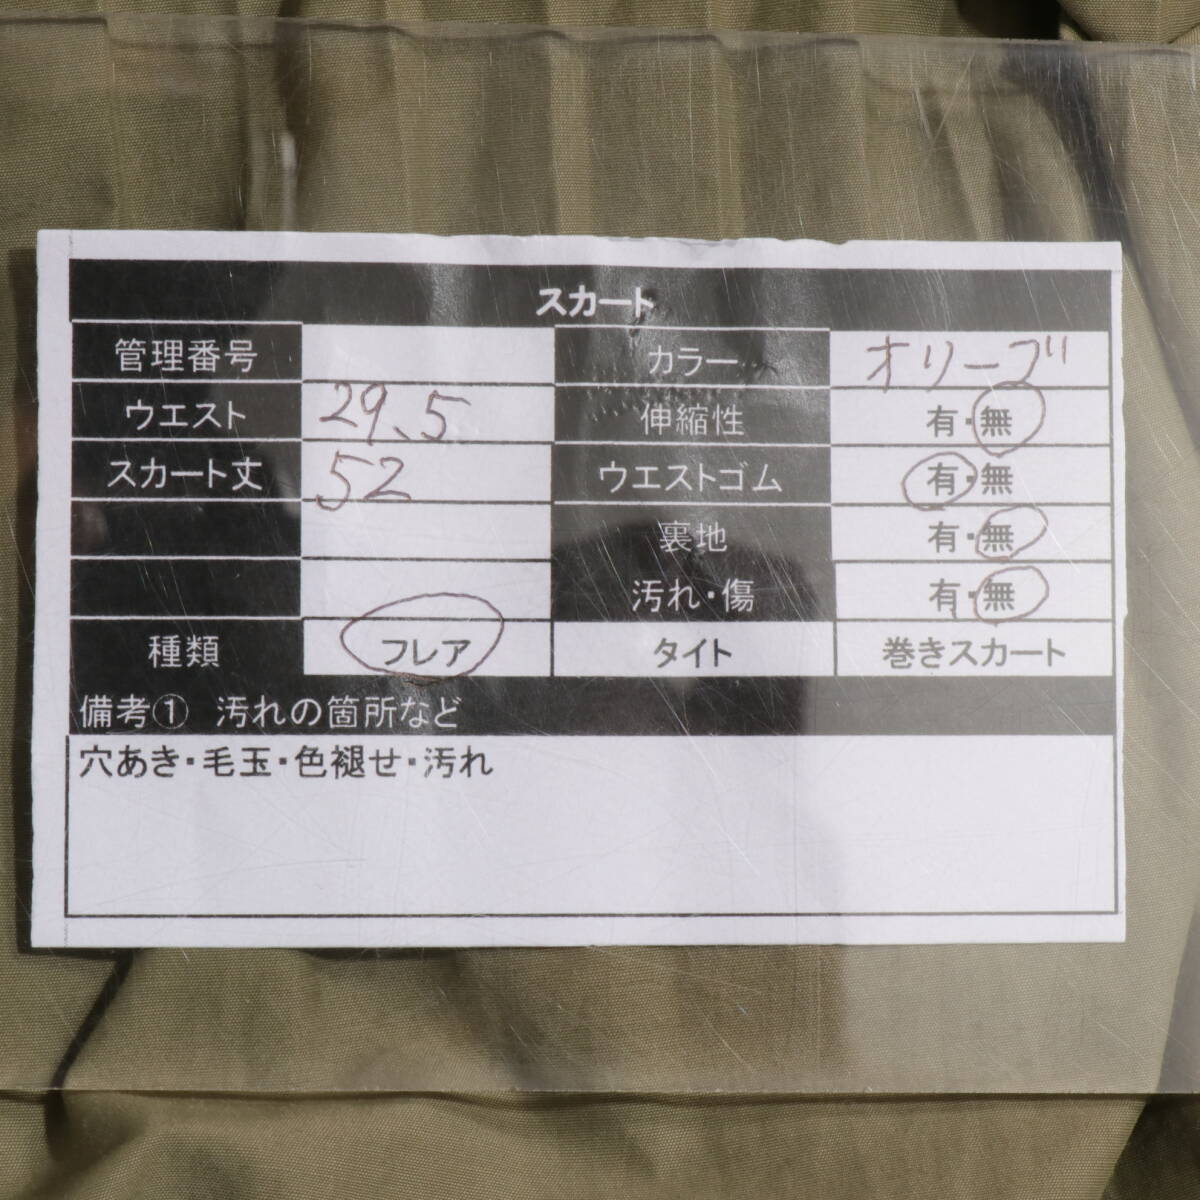 スカート
管理番号 カラー オリーブ
ウエスト 29.5 伸縮性 有・無
スカート丈 52 ウエストゴム 有・無
裏地 有・無
汚れ・傷 有・無
種類 フレア タイト 巻きスカート
備考① 汚れの箇所など
穴あき・毛玉・色褪せ・汚れ